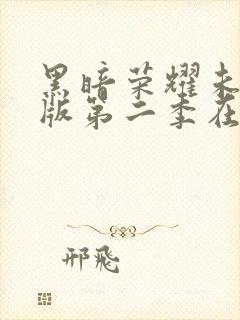 黑暗荣耀未
版第二季在
邢飛